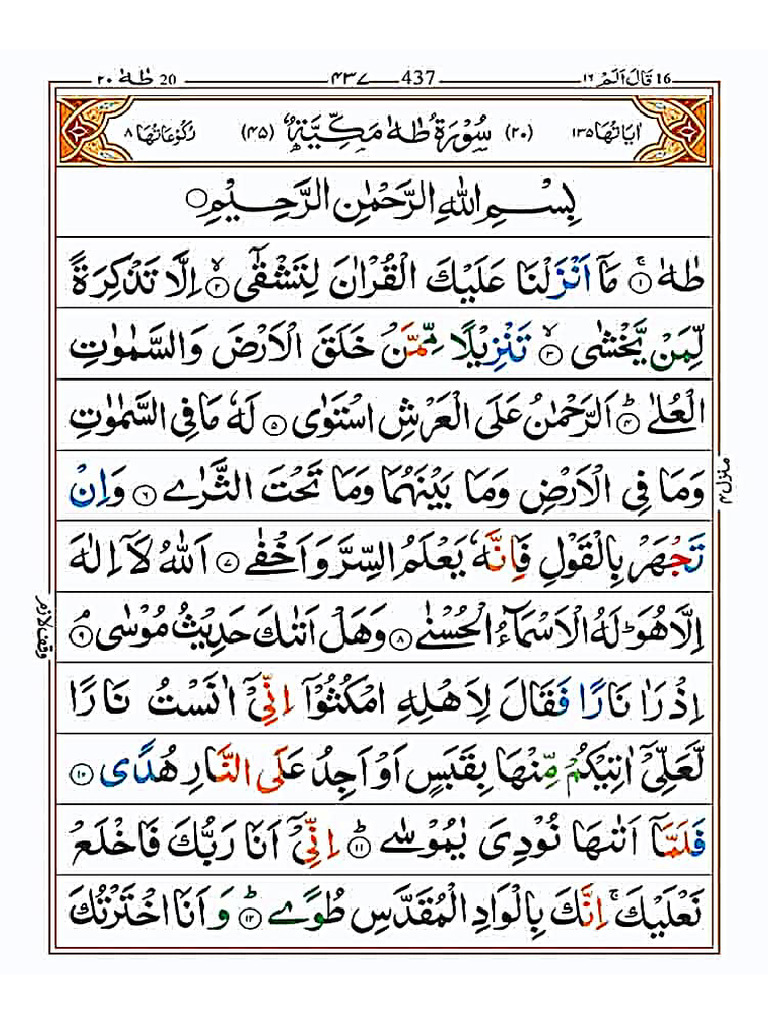 16 قَالَ اَلَمْ ١٦ 437 ٤٣٧ 20 طٰهٰ ٢٠
اٰيَاتُهَا ١٣٥ (٢٠) سُوْرَةُ طٰهٰ مَكِّيَّةٌ (٤٥) رُكُوْعَاتُهَا ٨
بِسْمِ اللّٰهِ الرَّحْمٰنِ الرَّحِيْمِ
طٰهٰ ۚ﴿١﴾ مَاۤ اَنْزَلْنَا عَلَيْكَ الْقُرْاٰنَ لِتَشْقٰٓى ۙ﴿٢﴾ اِلَّا تَذْكِرَةً
لِّمَنْ يَّخْشٰى ۙ﴿٣﴾ تَنْزِيْلًا مِّمَّنْ خَلَقَ الْاَرْضَ وَالسَّمٰوٰتِ
الْعُلٰى ؕ﴿٤﴾ اَلرَّحْمٰنُ عَلَى الْعَرْشِ اسْتَوٰى ﴿٥﴾ لَهٗ مَا فِى السَّمٰوٰتِ
وَمَا فِى الْاَرْضِ وَمَا بَيْنَهُمَا وَمَا تَحْتَ الثَّرٰى ﴿٦﴾ وَاِنْ
تَجْهَرْ بِالْقَوْلِ فَاِنَّهٗ يَعْلَمُ السِّرَّ وَاَخْفٰى ﴿٧﴾ اَللّٰهُ لَاۤ اِلٰهَ
اِلَّا هُوَ ؕ لَهُ الْاَسْمَآءُ الْحُسْنٰى ﴿٨﴾ وَهَلْ اَتٰىكَ حَدِيْثُ مُوْسٰى ۘ﴿٩﴾
اِذْ رَاٰ نَارًا فَقَالَ لِاَهْلِهِ امْكُثُوْۤا اِنِّىْۤ اٰنَسْتُ نَارًا
لَّعَلِّىْۤ اٰتِيْكُمْ مِّنْهَا بِقَبَسٍ اَوْ اَجِدُ عَلَى النَّارِ هُدًى ﴿١٠﴾
فَلَمَّاۤ اَتٰىهَا نُوْدِىَ يٰمُوْسٰى ؕ﴿١١﴾ اِنِّىْۤ اَنَا رَبُّكَ فَاخْلَعْ
نَعْلَيْكَ ۚ اِنَّكَ بِالْوَادِ الْمُقَدَّسِ طُوًى ؕ﴿١٢﴾ وَاَنَا اخْتَرْتُكَ
منزل ٤
وقف لازم